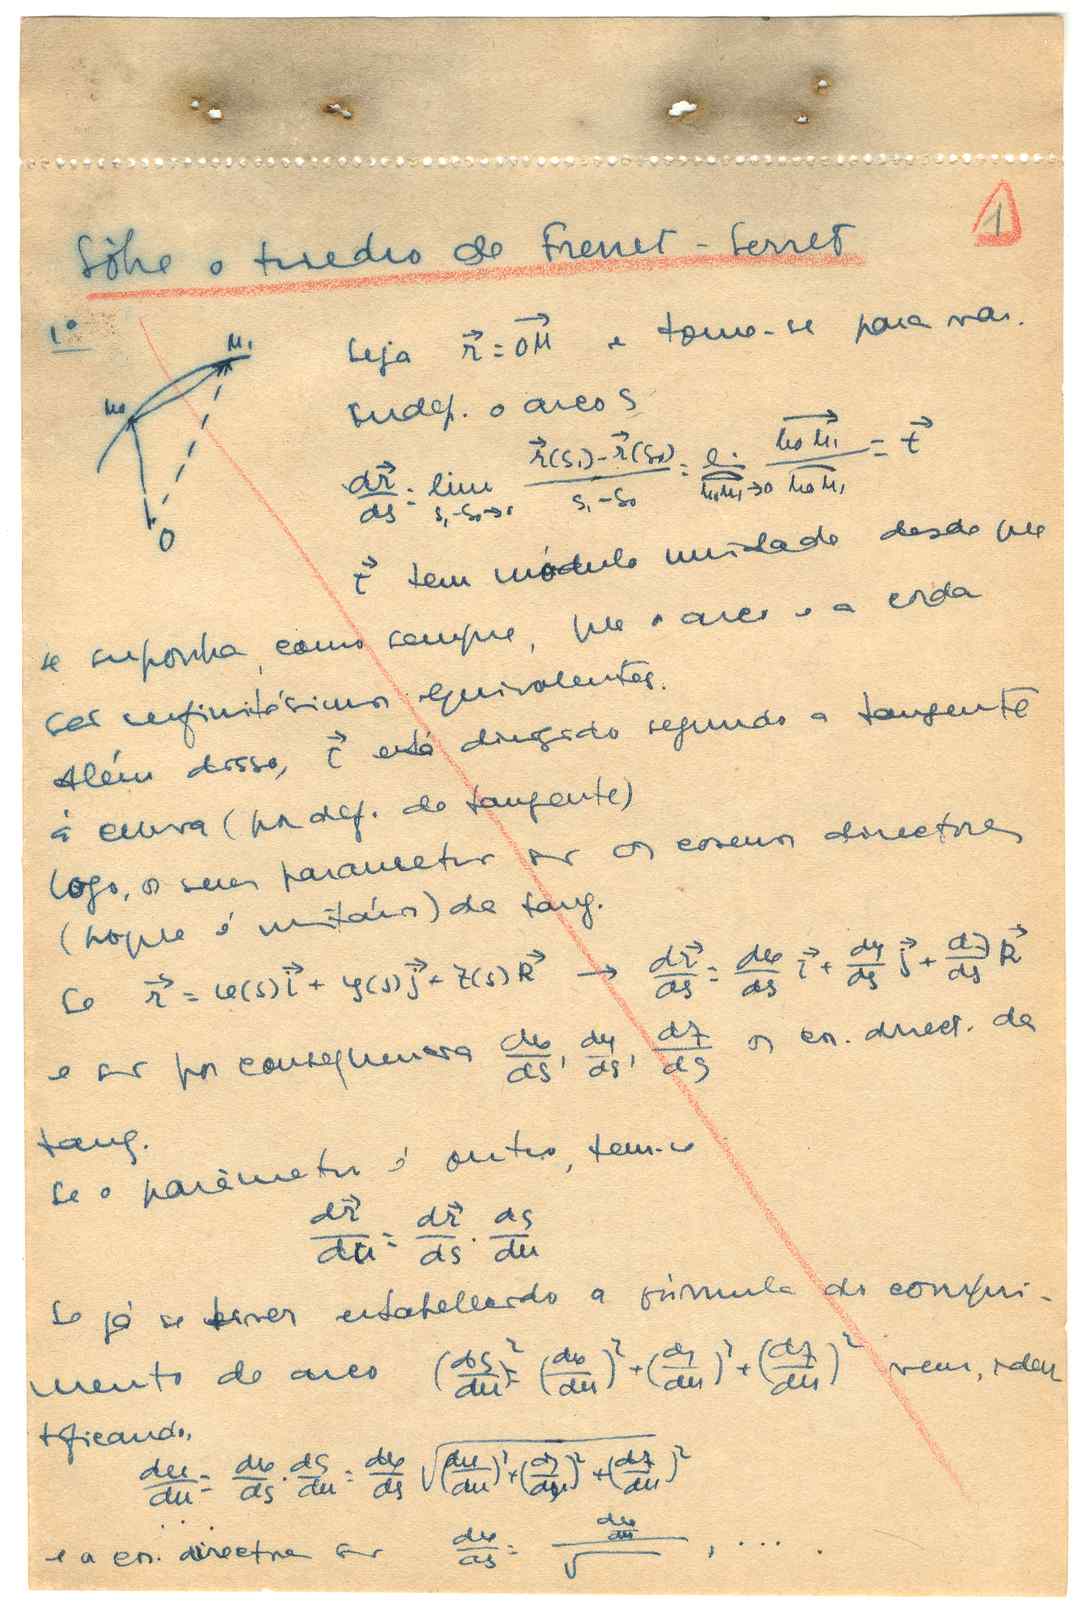 1
Sôbre o triedro de Frenet-Serret
1º
M₁
M₀
O
Seja r⃗ = OM⃗ e tome-se para var.
indep. o arco s
dr⃗/ds = lim_{s₁-s₀→0} (r⃗(s₁)-r⃗(s₀))/(s₁-s₀) = l._{M₀M₁→0} M₀M₁/M₀M₁ = t⃗
t⃗ tem módulo unidade desde que
se suponha, como sempre, que o arco e a corda
são infinitésimos equivalentes.
Além disso, t⃗ está dirigido segundo a tangente
à curva (por def. de tangente)
Logo, os seus parametros são os cosenos directores
(porque é unitário) da tang.
Se r⃗ = x(s)i⃗ + y(s)j⃗ + z(s)k⃗ → dr⃗/ds = dx/ds i⃗ + dy/ds j⃗ + dz/ds k⃗
e são por consequencia dx/ds, dy/ds, dz/ds os co. direct. da
tang.
Se o parâmetro é outro, tem-se
dr⃗/du = dr⃗/ds · ds/du
Se já se tiver estabelecido a fórmula do compri-
mento de arco (ds/du)² = (dx/du)² + (dy/du)² + (dz/du)² vem, iden
tificando,
dx/du = dx/ds · ds/du = dx/ds √(dx/du)² + (dy/du)² + (dz/du)²
e os co. directores são dx/ds = (dx/du)/√ , ....